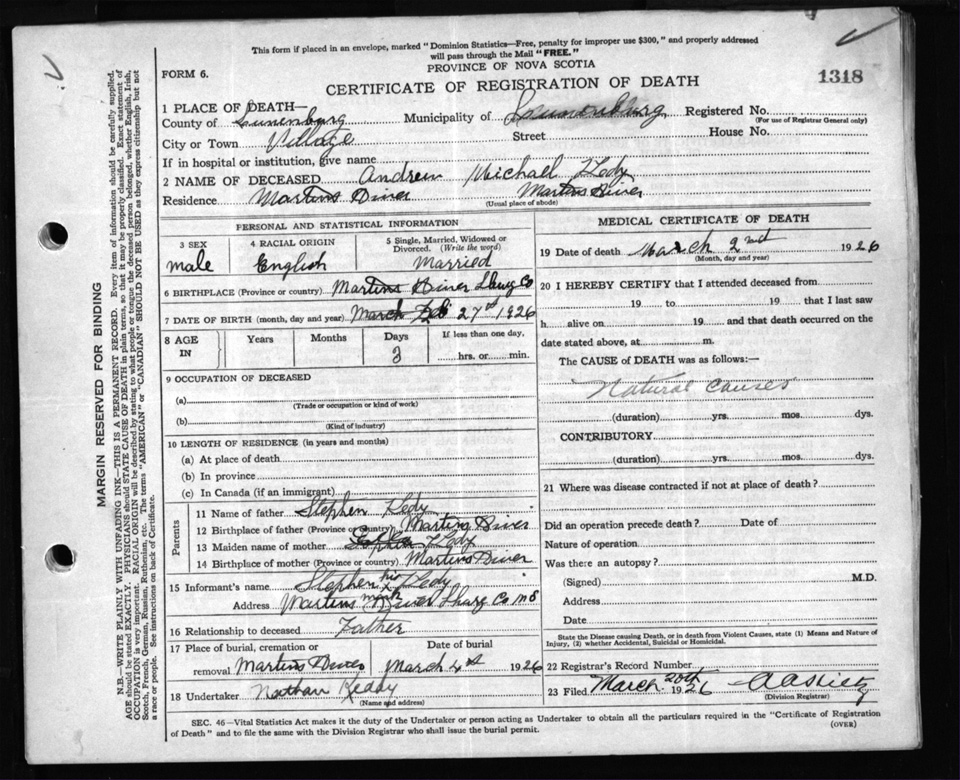 This form if placed in an envelope, marked "Dominion Statistics—Free, penalty for improper use $300," and properly addressed
will pass through the Mail "FREE."
PROVINCE OF NOVA SCOTIA
FORM 6.
CERTIFICATE OF REGISTRATION OF DEATH
1318
1 PLACE OF DEATH—
County of Lunenburg Municipality of Lunenburg Registered No.
(For use of Registrar General only)
City or Town Village Street House No.
If in hospital or institution, give name
2 NAME OF DECEASED Andrew Michael
Residence Martins River Martins River
(Usual place of abode)
PERSONAL AND STATISTICAL INFORMATION
3 SEX 4 RACIAL ORIGIN 5 Single, Married, Widowed or Divorced. (Write the word)
male English Married
6 BIRTHPLACE (Province or country) Martins River Co
7 DATE OF BIRTH (month, day and year) March Feb 27 1926
8 AGE IN Years Months Days If less than one day,
3 hrs. or min.
9 OCCUPATION OF DECEASED
(a)
(Trade or occupation or kind of work)
(b)
(Kind of industry)
10 LENGTH OF RESIDENCE (in years and months)
(a) At place of death
(b) In province
(c) In Canada (if an immigrant)
Parents
11 Name of father Stephen
12 Birthplace of father (Province or Country) Martins River
13 Maiden name of mother
14 Birthplace of mother (Province or country) Martins River
15 Informant's name Stephen his x
Address Martins mark River Co N S
16 Relationship to deceased Father
17 Place of burial, cremation or Date of burial
removal Martins River March 4 1926
18 Undertaker Nathan Keddy
(Name and address)
MEDICAL CERTIFICATE OF DEATH
19 Date of death March 2nd 1926
(Month, day and year)
20 I HEREBY CERTIFY that I attended deceased from
19 to 19 that I last saw
h alive on 19 and that death occurred on the
date stated above, at m.
The CAUSE of DEATH was as follows:—
Natural causes
(duration) yrs. mos. dys.
CONTRIBUTORY
(duration) yrs. mos. dys.
21 Where was disease contracted if not at place of death?
Did an operation precede death? Date of
Nature of operation
Was there an autopsy?
(Signed) M.D.
Address
Date
State the Disease causing Death, or in death from Violent Causes, state (1) Means and Nature of
Injury, (2) whether Accidental, Suicidal or Homicidal.
22 Registrar's Record Number
23 Filed March 20th 1926
(Division Registrar)
SEC. 46—Vital Statistics Act makes it the duty of the Undertaker or person acting as Undertaker to obtain all the particulars required in the "Certificate of Registration
of Death" and to file the same with the Division Registrar who shall issue the burial permit.
(OVER)
MARGIN RESERVED FOR BINDING
N.B.—WRITE PLAINLY WITH UNFADING INK—THIS IS A PERMANENT RECORD. Every item of information should be carefully supplied.
AGE should be stated EXACTLY. PHYSICIANS should STATE CAUSE OF DEATH in plain terms, so that it may be properly classified. Exact statement of
OCCUPATION is very important. RACIAL ORIGIN will be described by stating to what people or tongue the deceased person belonged, whether English, Irish,
Scotch, French, German, Russian, Ruthenian, etc. The terms "AMERICAN" or "CANADIAN" SHOULD NOT BE USED as they express citizenship but not
a race or people. See instructions on back of Certificate.